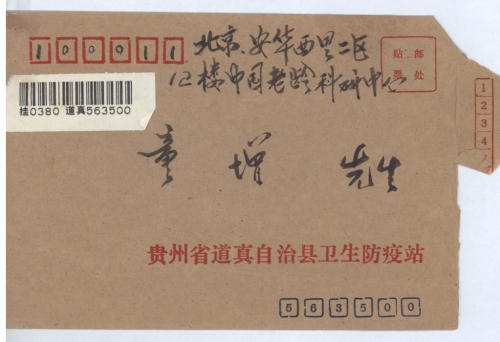 100011
北京.安华西里二区
12楼中国老龄科研中心
贴邮
票处
挂0380 道真563500
童增 先生
1
2
3
4
贵州省道真自治县卫生防疫站
563500